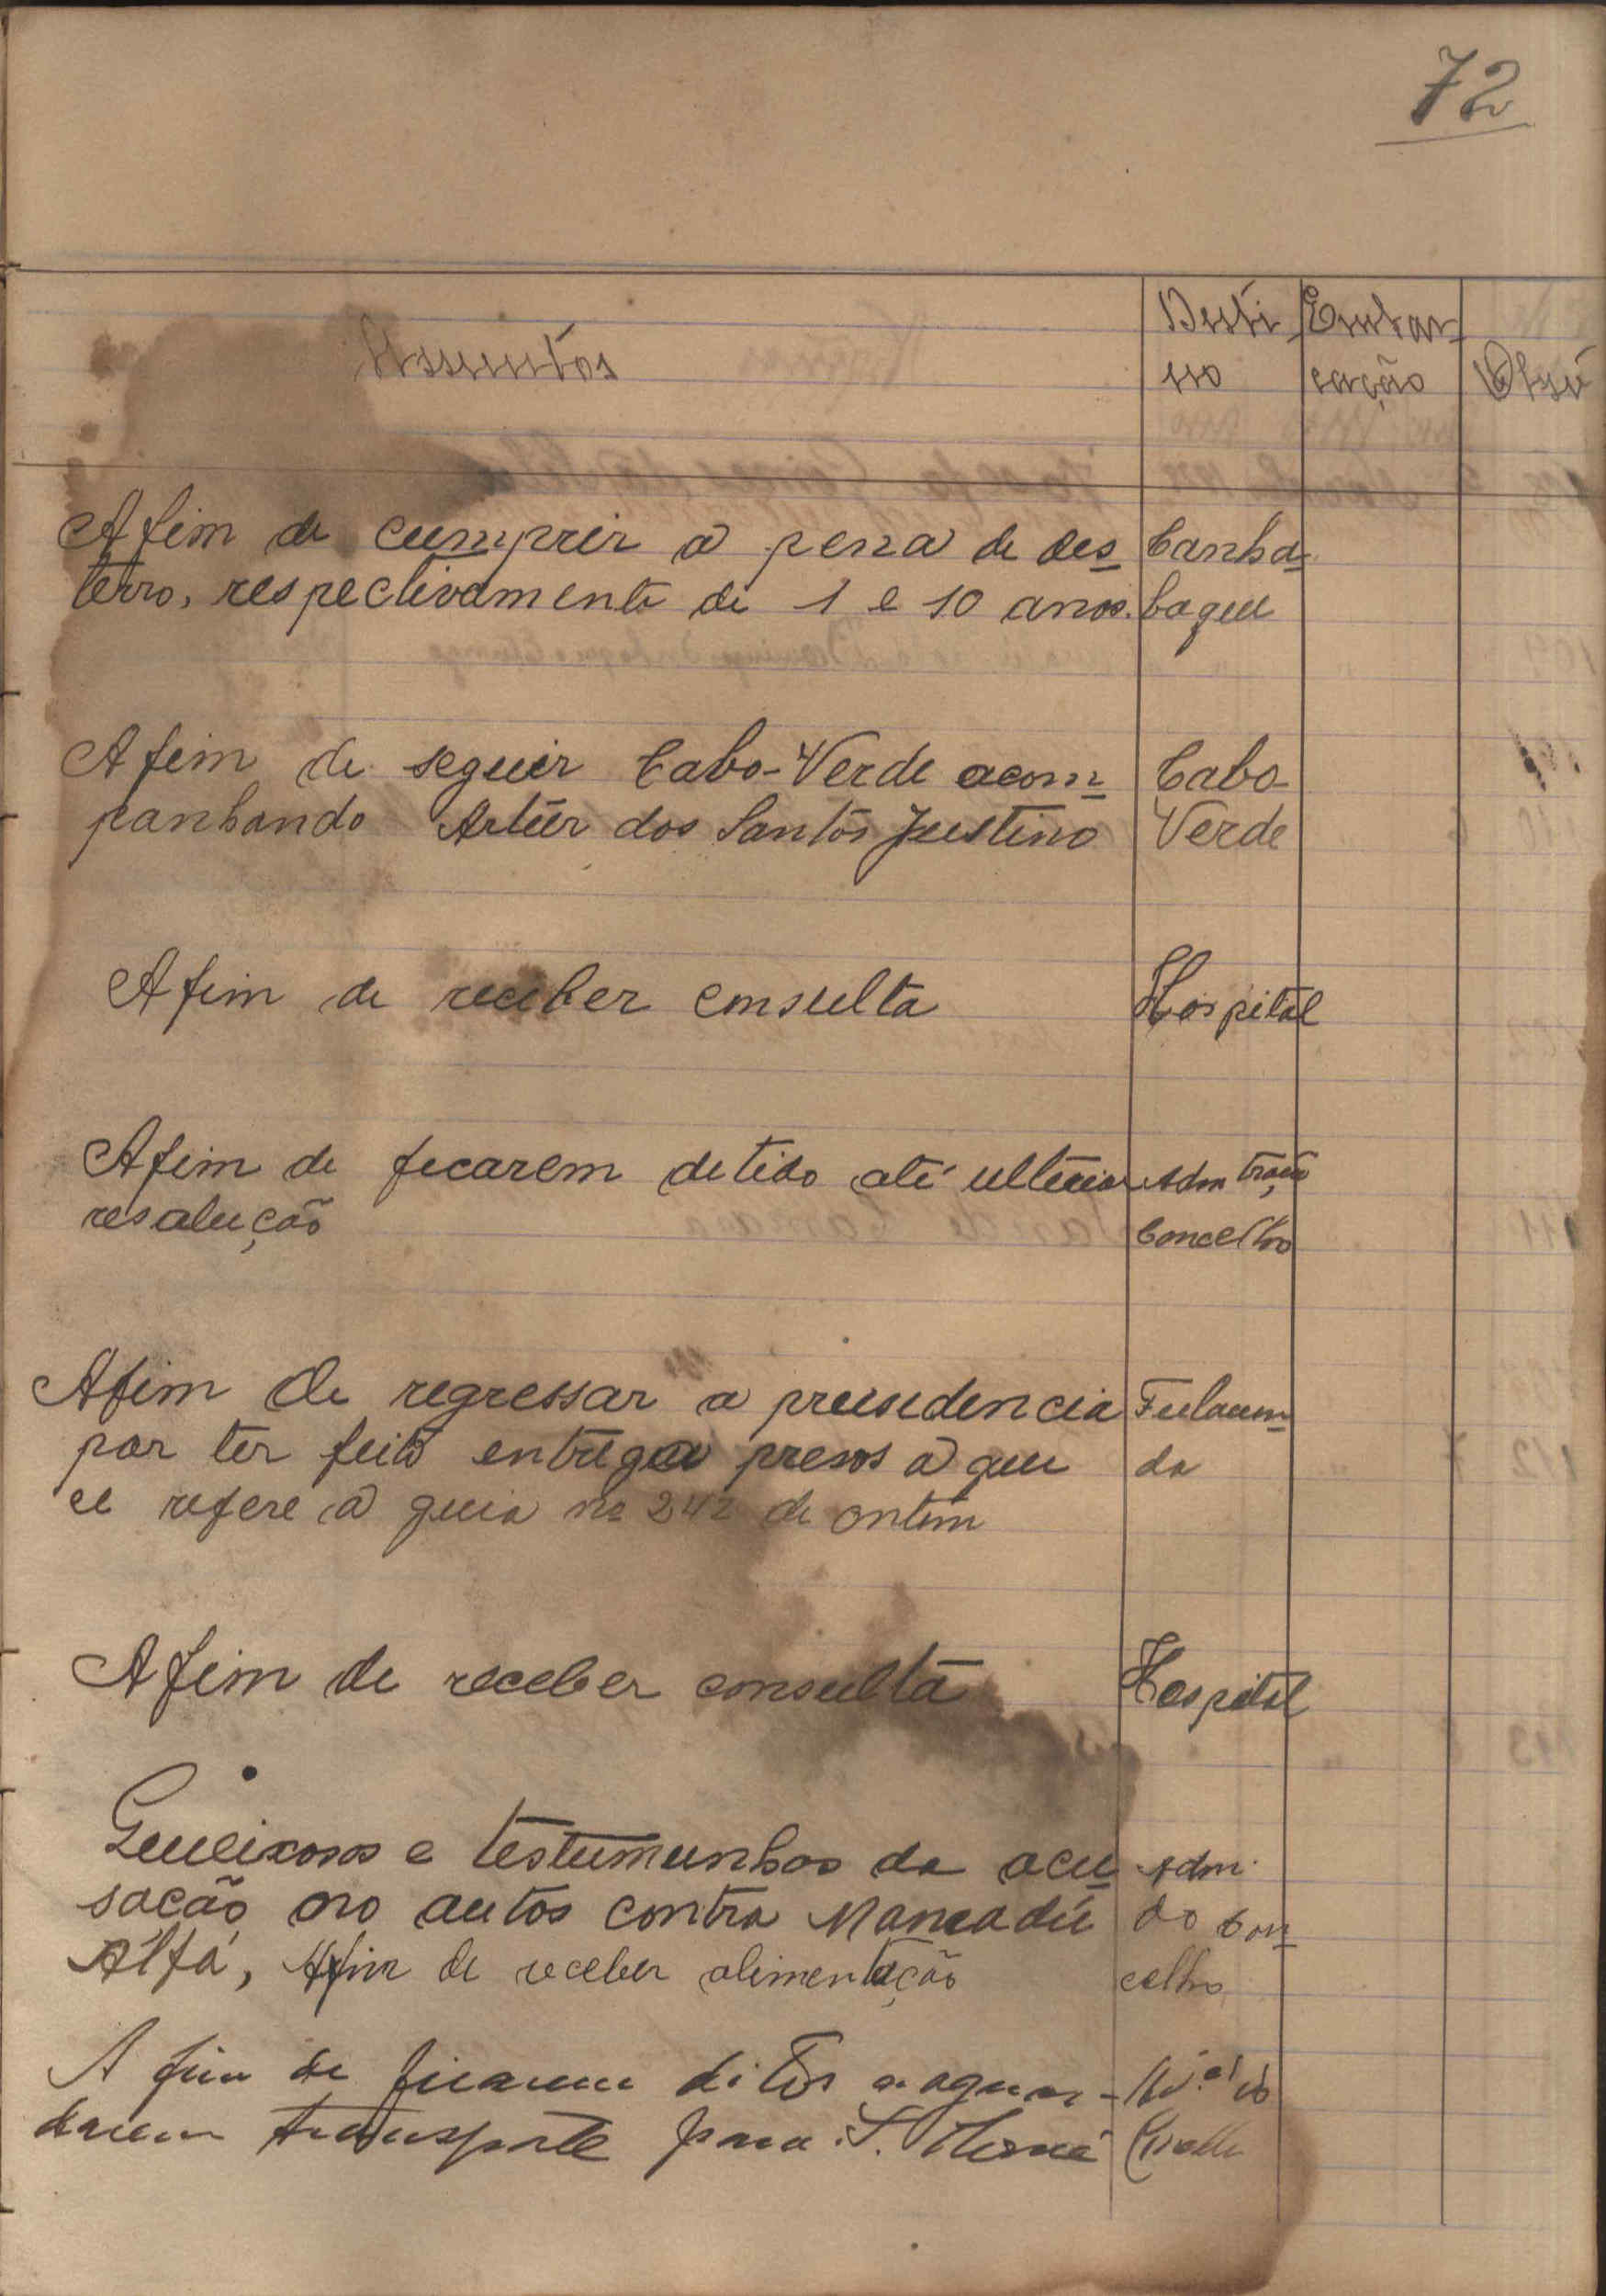 72
Assuntos
Desti
no
Embar
cação
Obsv
Afim de cumprir a pena de des
terro, respectivamente de 1 e 10 anos.
Canha
baque
Afim de seguir Cabo-Verde acom
panhando Artúr dos Santos Justino
Cabo-
Verde
Afim de receber consulta
Hospital
Afim de ficarem detido até ulterior
resalução
Adm tração
Concelho
Afim de regressar a prusidencia
por ter feito entrega presos a que
se refere a guia nº 242 de ontem
Fulacun
da
Afim de receber consulta
Hospital
Queixosos e testumunhas da acu
sacão no autos contra Mamadú
Alfá, Afim de receber alimentação
Adm.
do Con
celho
A fim de ficarem ditos a aguar-
darem transporte para S. Tomé